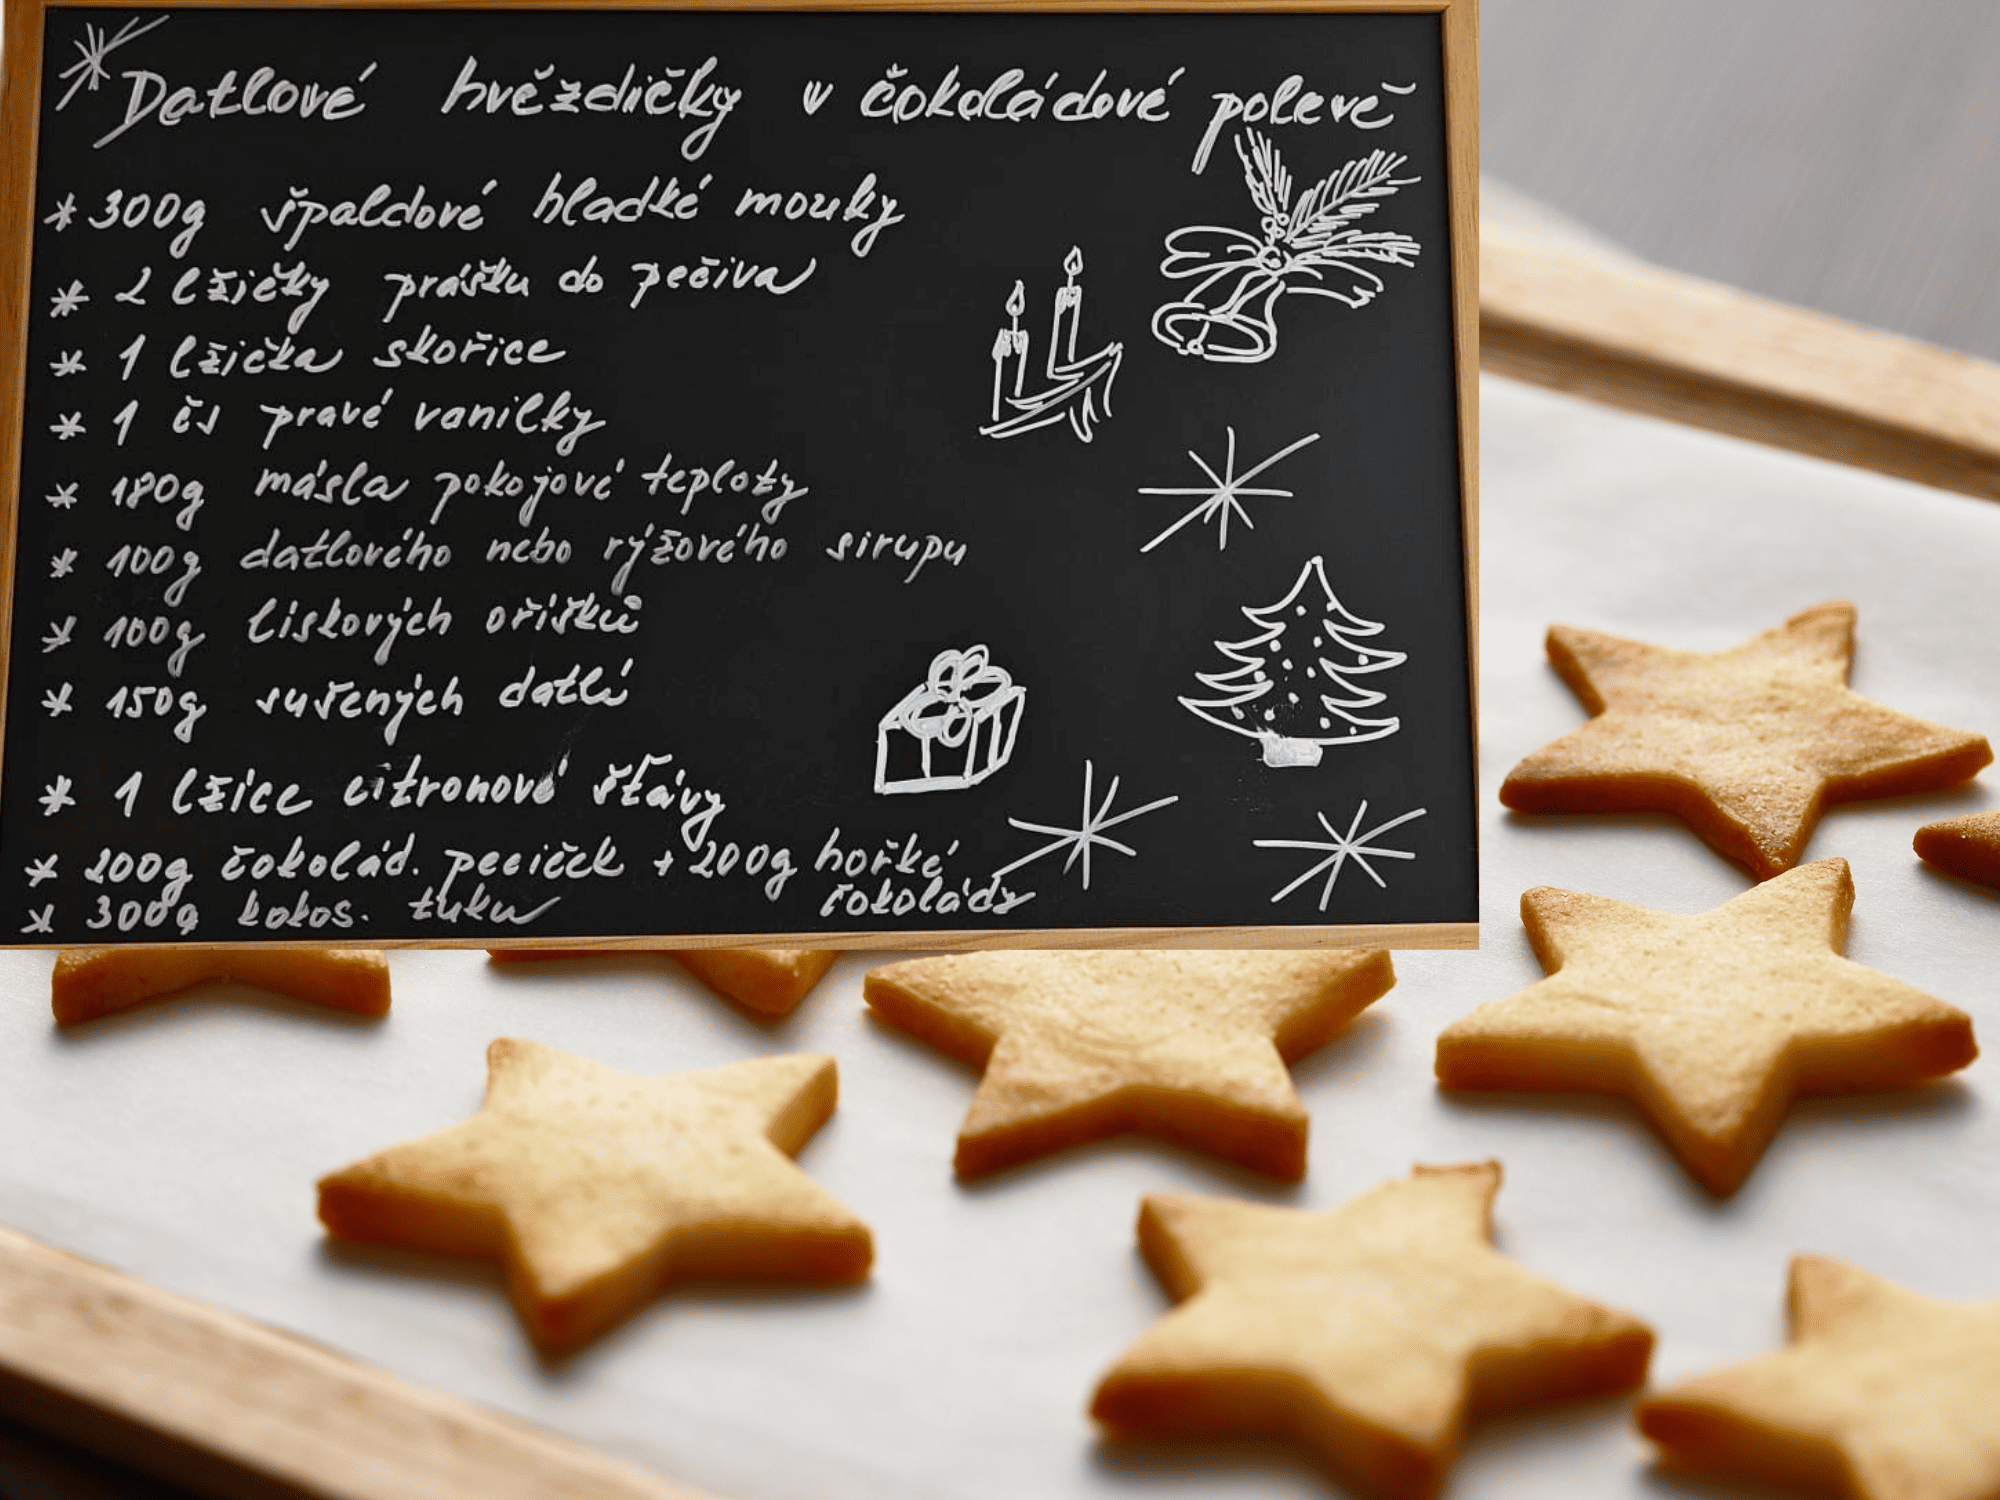 Datlové hvězdičky v čokoládové polevě
* 300g špaldové hladké mouky
* 2 lžičky prášku do pečiva
* 1 lžička skořice
* 1 čs pravé vanilky
* 180g másla pokojové teploty
* 100g datlového nebo rýžového sirupu
* 100g lískových oříšků
* 150g sušených datlí
* 1 lžíce citronové šťávy
* 200g čokolád. peciček + 200g hořké
čokolády
* 300g kokos. tuku